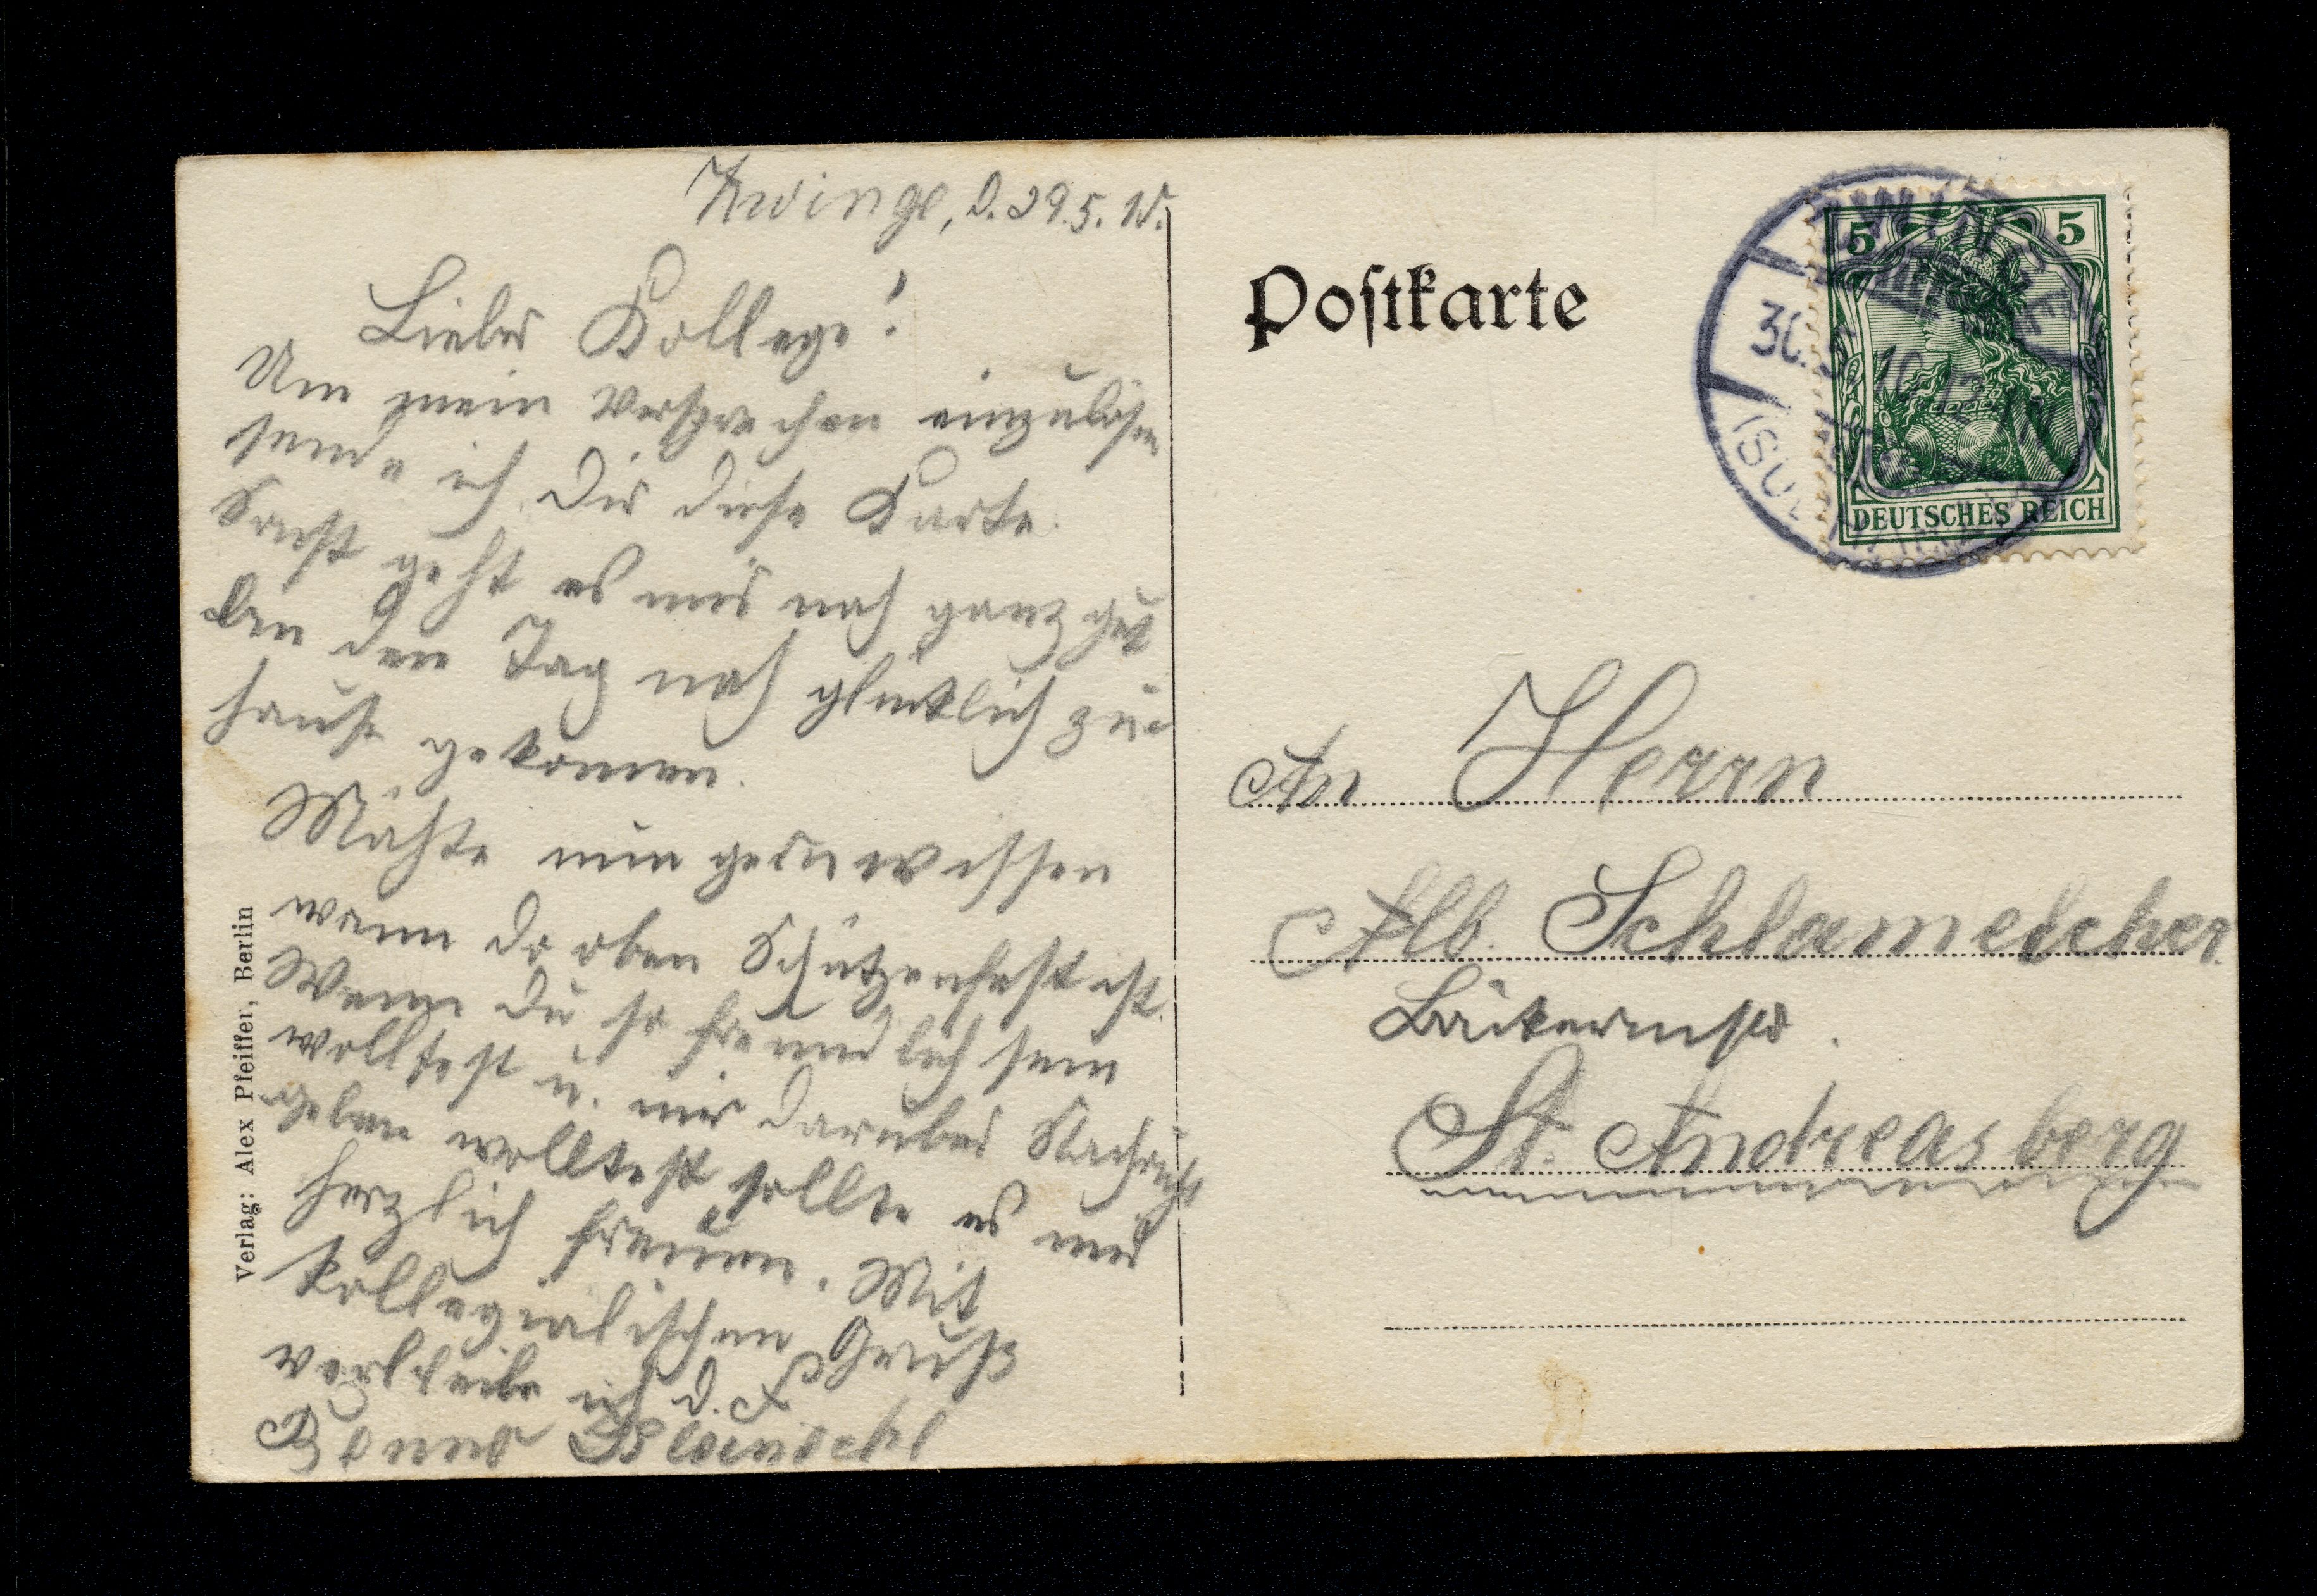 Zwinge, d. 29.5.10.
Lieber Kollege!
Um mein Versprechen einzulösen
sende ich Dir diese Karte.
Sonst geht es mir noch ganz gut
bin den Tag noch glücklich zu
hause gekommen.
Möchte nun gern wissen
wenn do oben Schützenfest ist.
Wenn Du so freundlich sein
wolltest u. mir darüber Nachricht
geben wolltest sollte es mir
herzlich freuen. Mit
kollegialischen Gruß
verbleibe ich d. F.
Verlag: Alex Pfeiffer, Berlin
Postkarte
5 5
DEUTSCHES REICH
ZWINGE
30.5.10.
An Herrn
Alb. Schlamelcher.
Bäckermstr.
St. Andreasberg